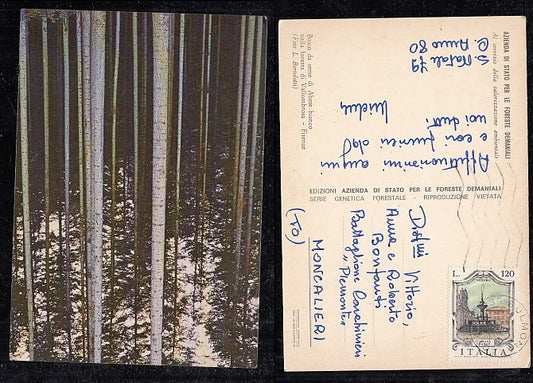 Bosco da seme di Abete bianco
nella foresta di Vallombrosa - Firenze
(Foto L. Bortolotti)
AZIENDA DI STATO PER LE FORESTE DEMANIALI
Al servizio della valorizzazione ambientale
S. Natale 79
Anno 80
Affettuosissimi auguri
e cari
EDIZIONI AZIENDA DI STATO PER LE FORESTE DEMANIALI
SERIE GENETICA FORESTALE - RIPRODUZIONE VIETATA
Vittorio,
Anna e Roberto
Bonfanti
Battaglione Carabinieri
"Piemonte"
MONCALIERI
(TO)
L. 120
ITALIA